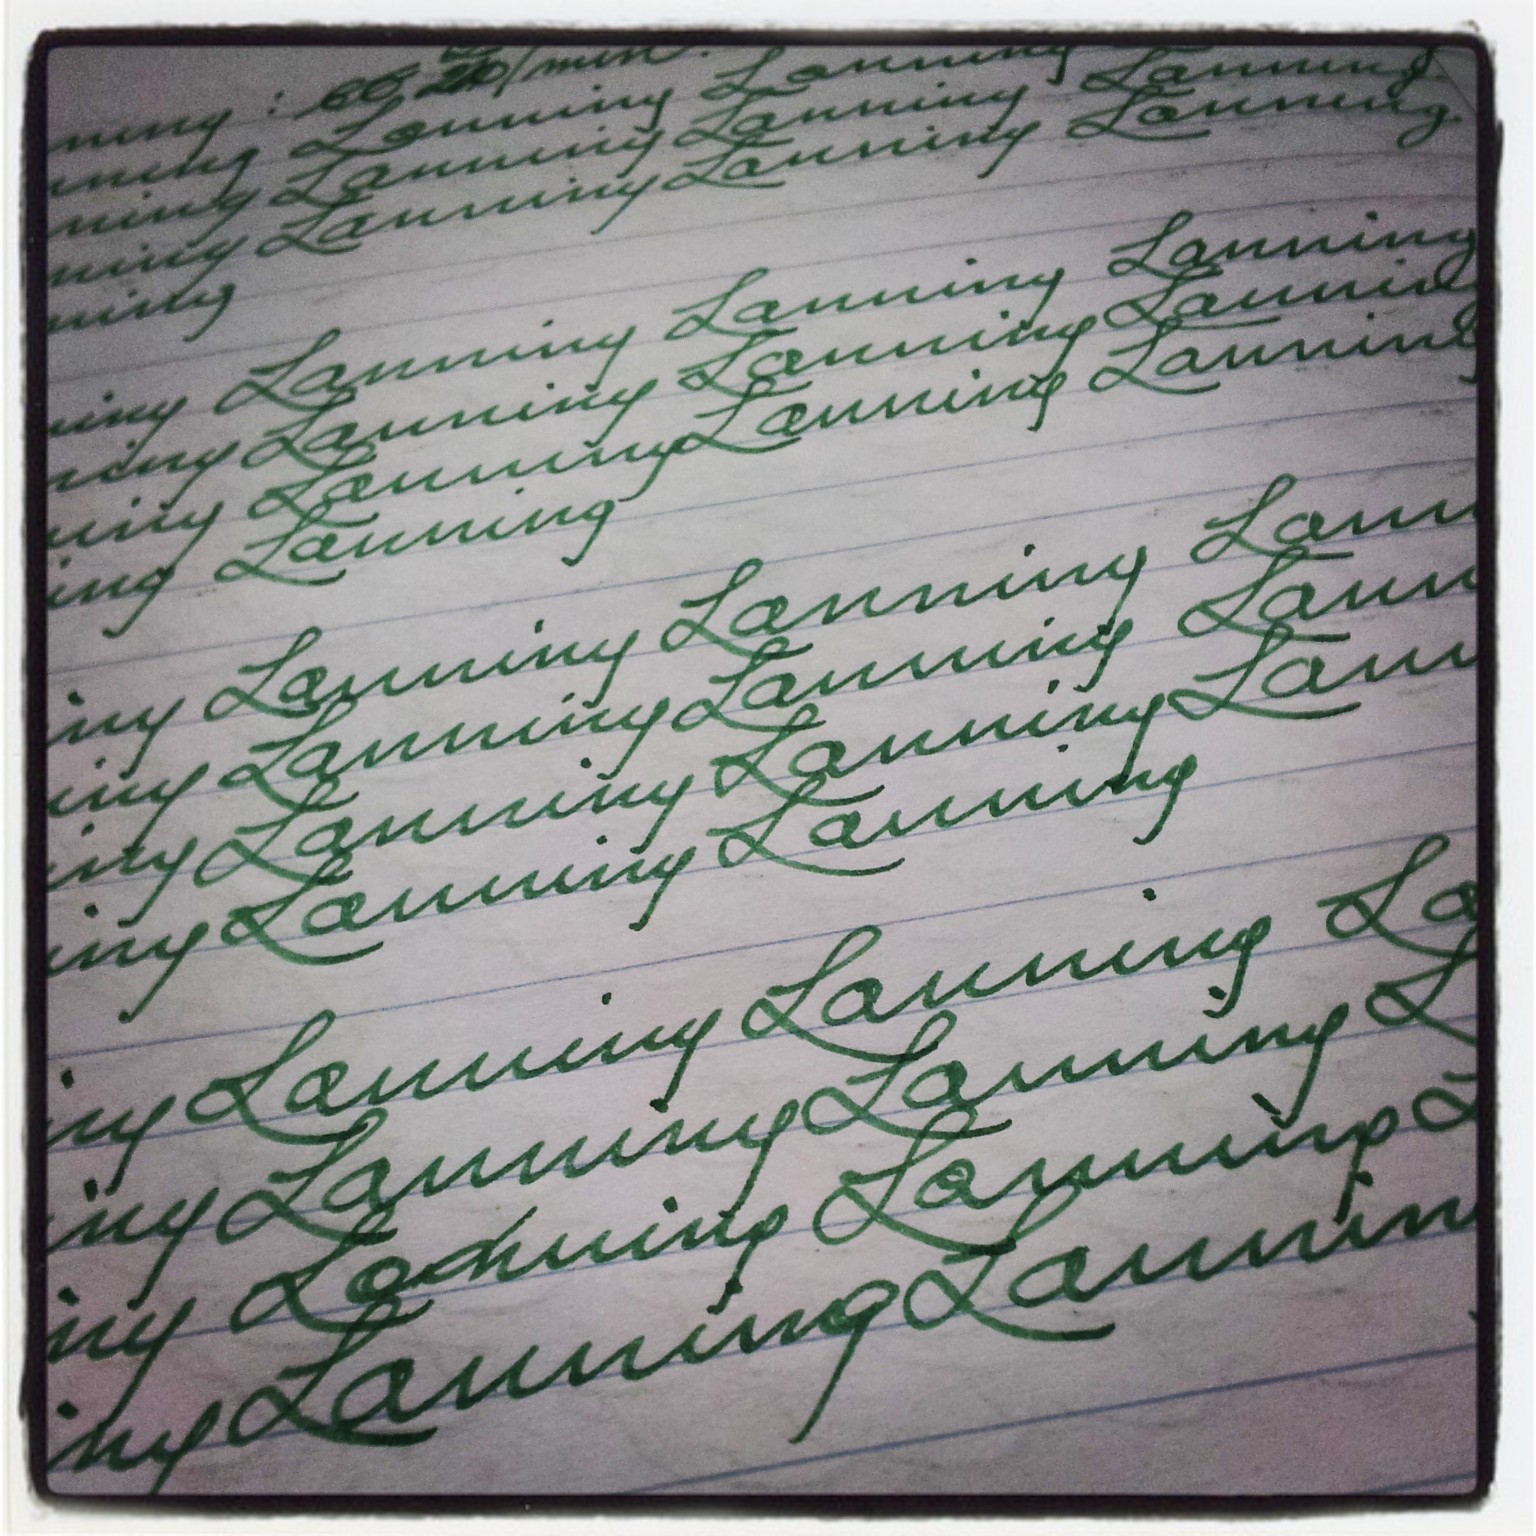 nning : /min.
nning Lanning Lanning
ning Lanning Lanning Lanning
ning Lanning Lanning Lanning.
ning
ning Lanning Lanning Lanning
ning Lanning Lanning Lanning
ning Lanning Lanning Lanning
ing Lanning
ing Lanning Lanning Lann
ing Lanning Lanning Lann
ing Lanning Lanning Lann
ing Lanning Lanning
ing Lanning Lanning La
ing Lanning Lanning L
ng Lanning Lanning L
ing Lanning Lannin